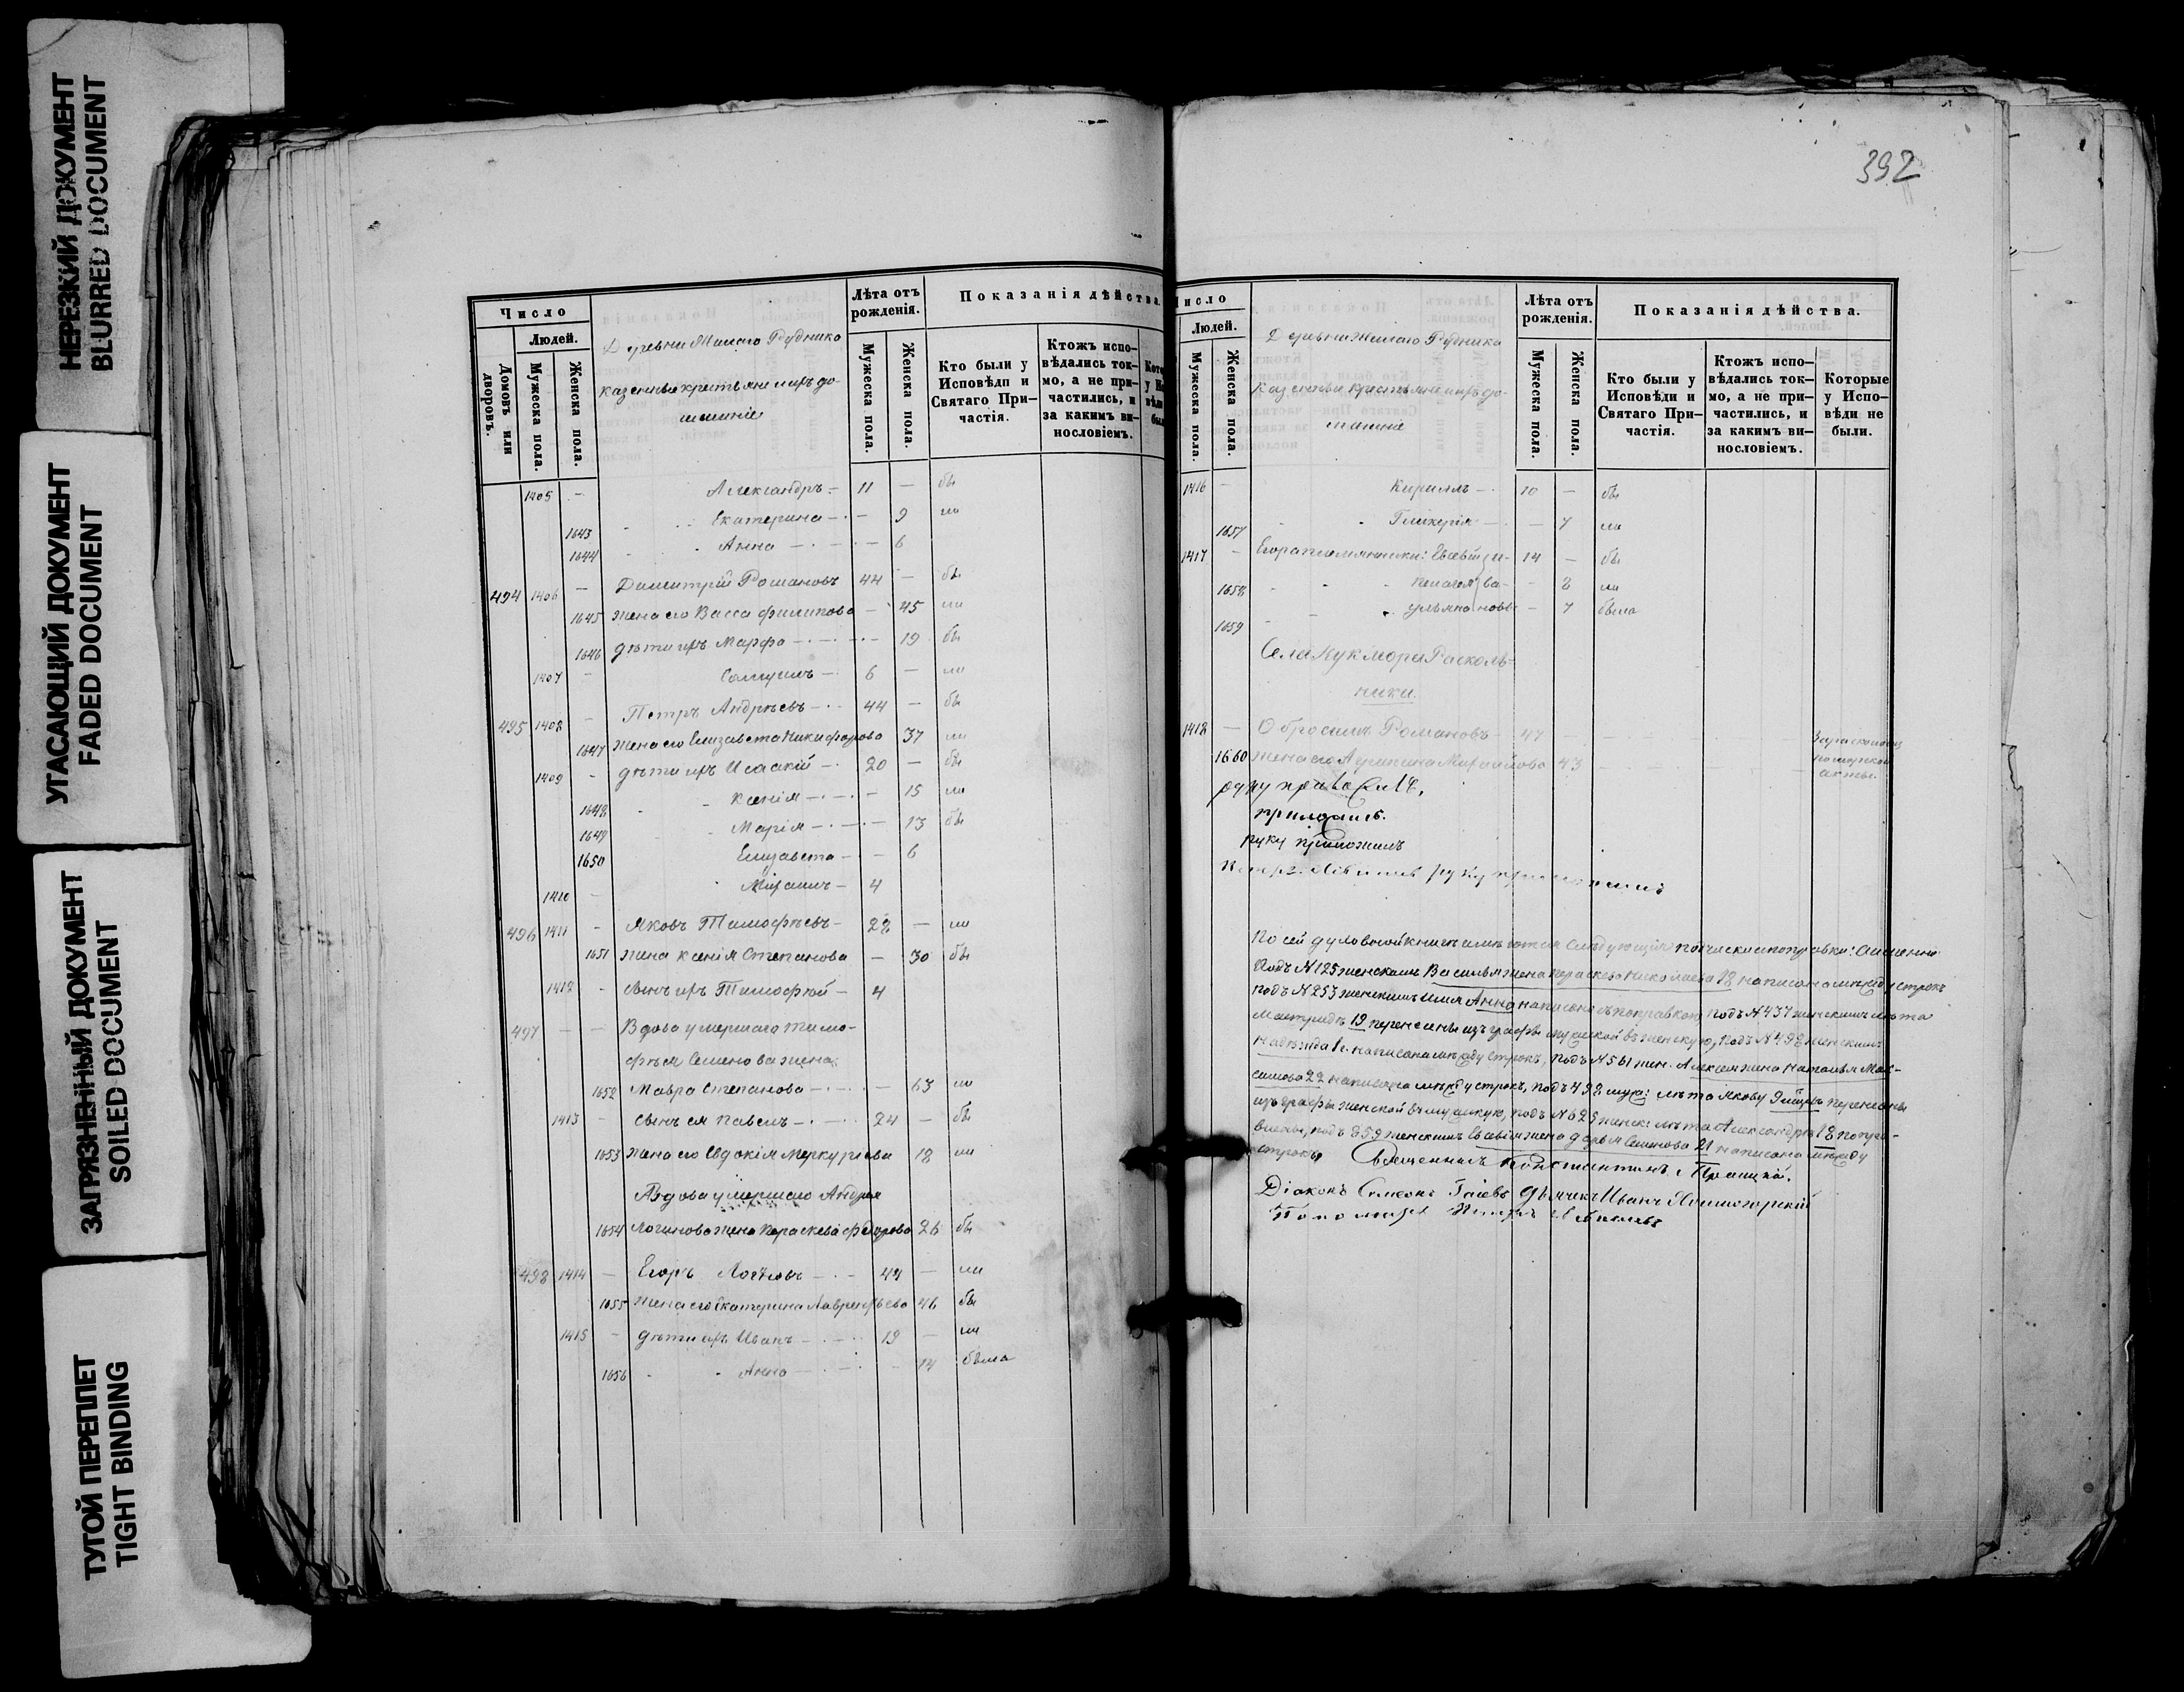 НЕРЕЗКИЙ ДОКУМЕНТ
BLURRED DOCUMENT
УГАСАЮЩИЙ ДОКУМЕНТ
FADED DOCUMENT
ЗАГРЯЗНЕННЫЙ ДОКУМЕНТ
SOILED DOCUMENT
ТУГОЙ ПЕРЕПЛЕТ
TIGHT BINDING
Число
Людей.
Домовъ или дворовъ.
Мужеска пола.
Женска пола.
Деревни Рудника
казенные крестьяне и ихъ до-
машніе
Лѣта отъ рожденія.
Мужеска пола.
Женска пола.
Показанія дѣйства.
Кто были у Исповѣди и Святаго Причастія.
Ктожъ исповѣдались токмо, а не причастились, и за какимъ винословіемъ.
1405 – Александръ – 11 – бы
1643 Екатерина – – 9 ли
1644 Анна – – 6
494 1406 – Димитрій Романовъ 44 – бы
1645 жена его Васса Филипова – 45 ли
1646 дѣти ихъ Марфа – – 19 бы
1407 – Самуилъ – 6 – ли
495 1408 – Петръ Андреевъ – 44 – бы
1647 жена его Елизавета Никифорова 37 ли
1409 – дѣти ихъ Исаакій – 20 – бы
1648 Ксенія – – 15 ли
1649 Марія – – 13 бы
1650 Елизавета – – 6
1410 – – 4
496 1411 – Яковъ Тимофѣевъ – 28 – ли
1651 жена Ксенія Степанова – 30 бы
1412 – сынъ ихъ Тимофей – 4
497 – – Вдова умершаго Тимо-
фѣя Семенова жена
1652 Мавра Степанова – – 63 ли
1413 – сынъ ея Павелъ – 24 – бы
1653 жена его Евдокія Меркурьева 18 ли
Вдова умершаго Андрея
1654 Логинова жена Параскева Федорова 26 бы
498 1414 – Егоръ Логиновъ – 44 – ли
1655 жена его Екатерина Лаврентьева 46 бы
1415 – дѣти ихъ Иванъ – 19 – ли
1656 Анна – – 14 была
392
Число
Людей.
Мужеска пола.
Женска пола.
Деревни Рудника
казенные крестьяне и ихъ до-
машніе
Лѣта отъ рожденія.
Мужеска пола.
Женска пола.
Показанія дѣйства.
Кто были у Исповѣди и Святаго Причастія.
Ктожъ исповѣдались токмо, а не причастились, и за какимъ винословіемъ.
Которые у Исповѣди не были.
1416 – Кириллъ – 10 – бы
1657 Гликерія – – 7 ли
1417 – Егора племянники: Евсевій 14 – бы
1658 Пелагея – 8 ли
1659 Ульяновы – 7 была
Села Кукморы Расколь-
ники.
1418 – Романовъ – 47
1660 жена его Михайлова 43
руку
руку приложилъ
руку приложилъ
По сей духовной книгѣ имѣются слѣдующія почиски и поправки: а именно
Подъ №125 женскимъ Василья жена Параскева Николаева 18 написано между строкъ
подъ №253 женскимъ имя Анна написано съ поправкою, подъ №437 женскимъ лѣта
19 перенесены изъ графы мужской въ женскую, подъ №498 женскимъ
Надежда 1. написана между строкъ, подъ №561 жен. Алексѣя жена Наталья Мак-
симова 22 написано между строкъ, подъ 498 муж: лѣта Якову перенесены
изъ графы женской въ мужскую, подъ №625 женск: лѣта Александры 18 попра-
влены, подъ 859 женскимъ Евсевія жена Дарья Семенова 21 написано между
строкъ Священникъ Константинъ Троицкій.
Діаконъ Симеонъ Дьячекъ Иванъ
Пономарь